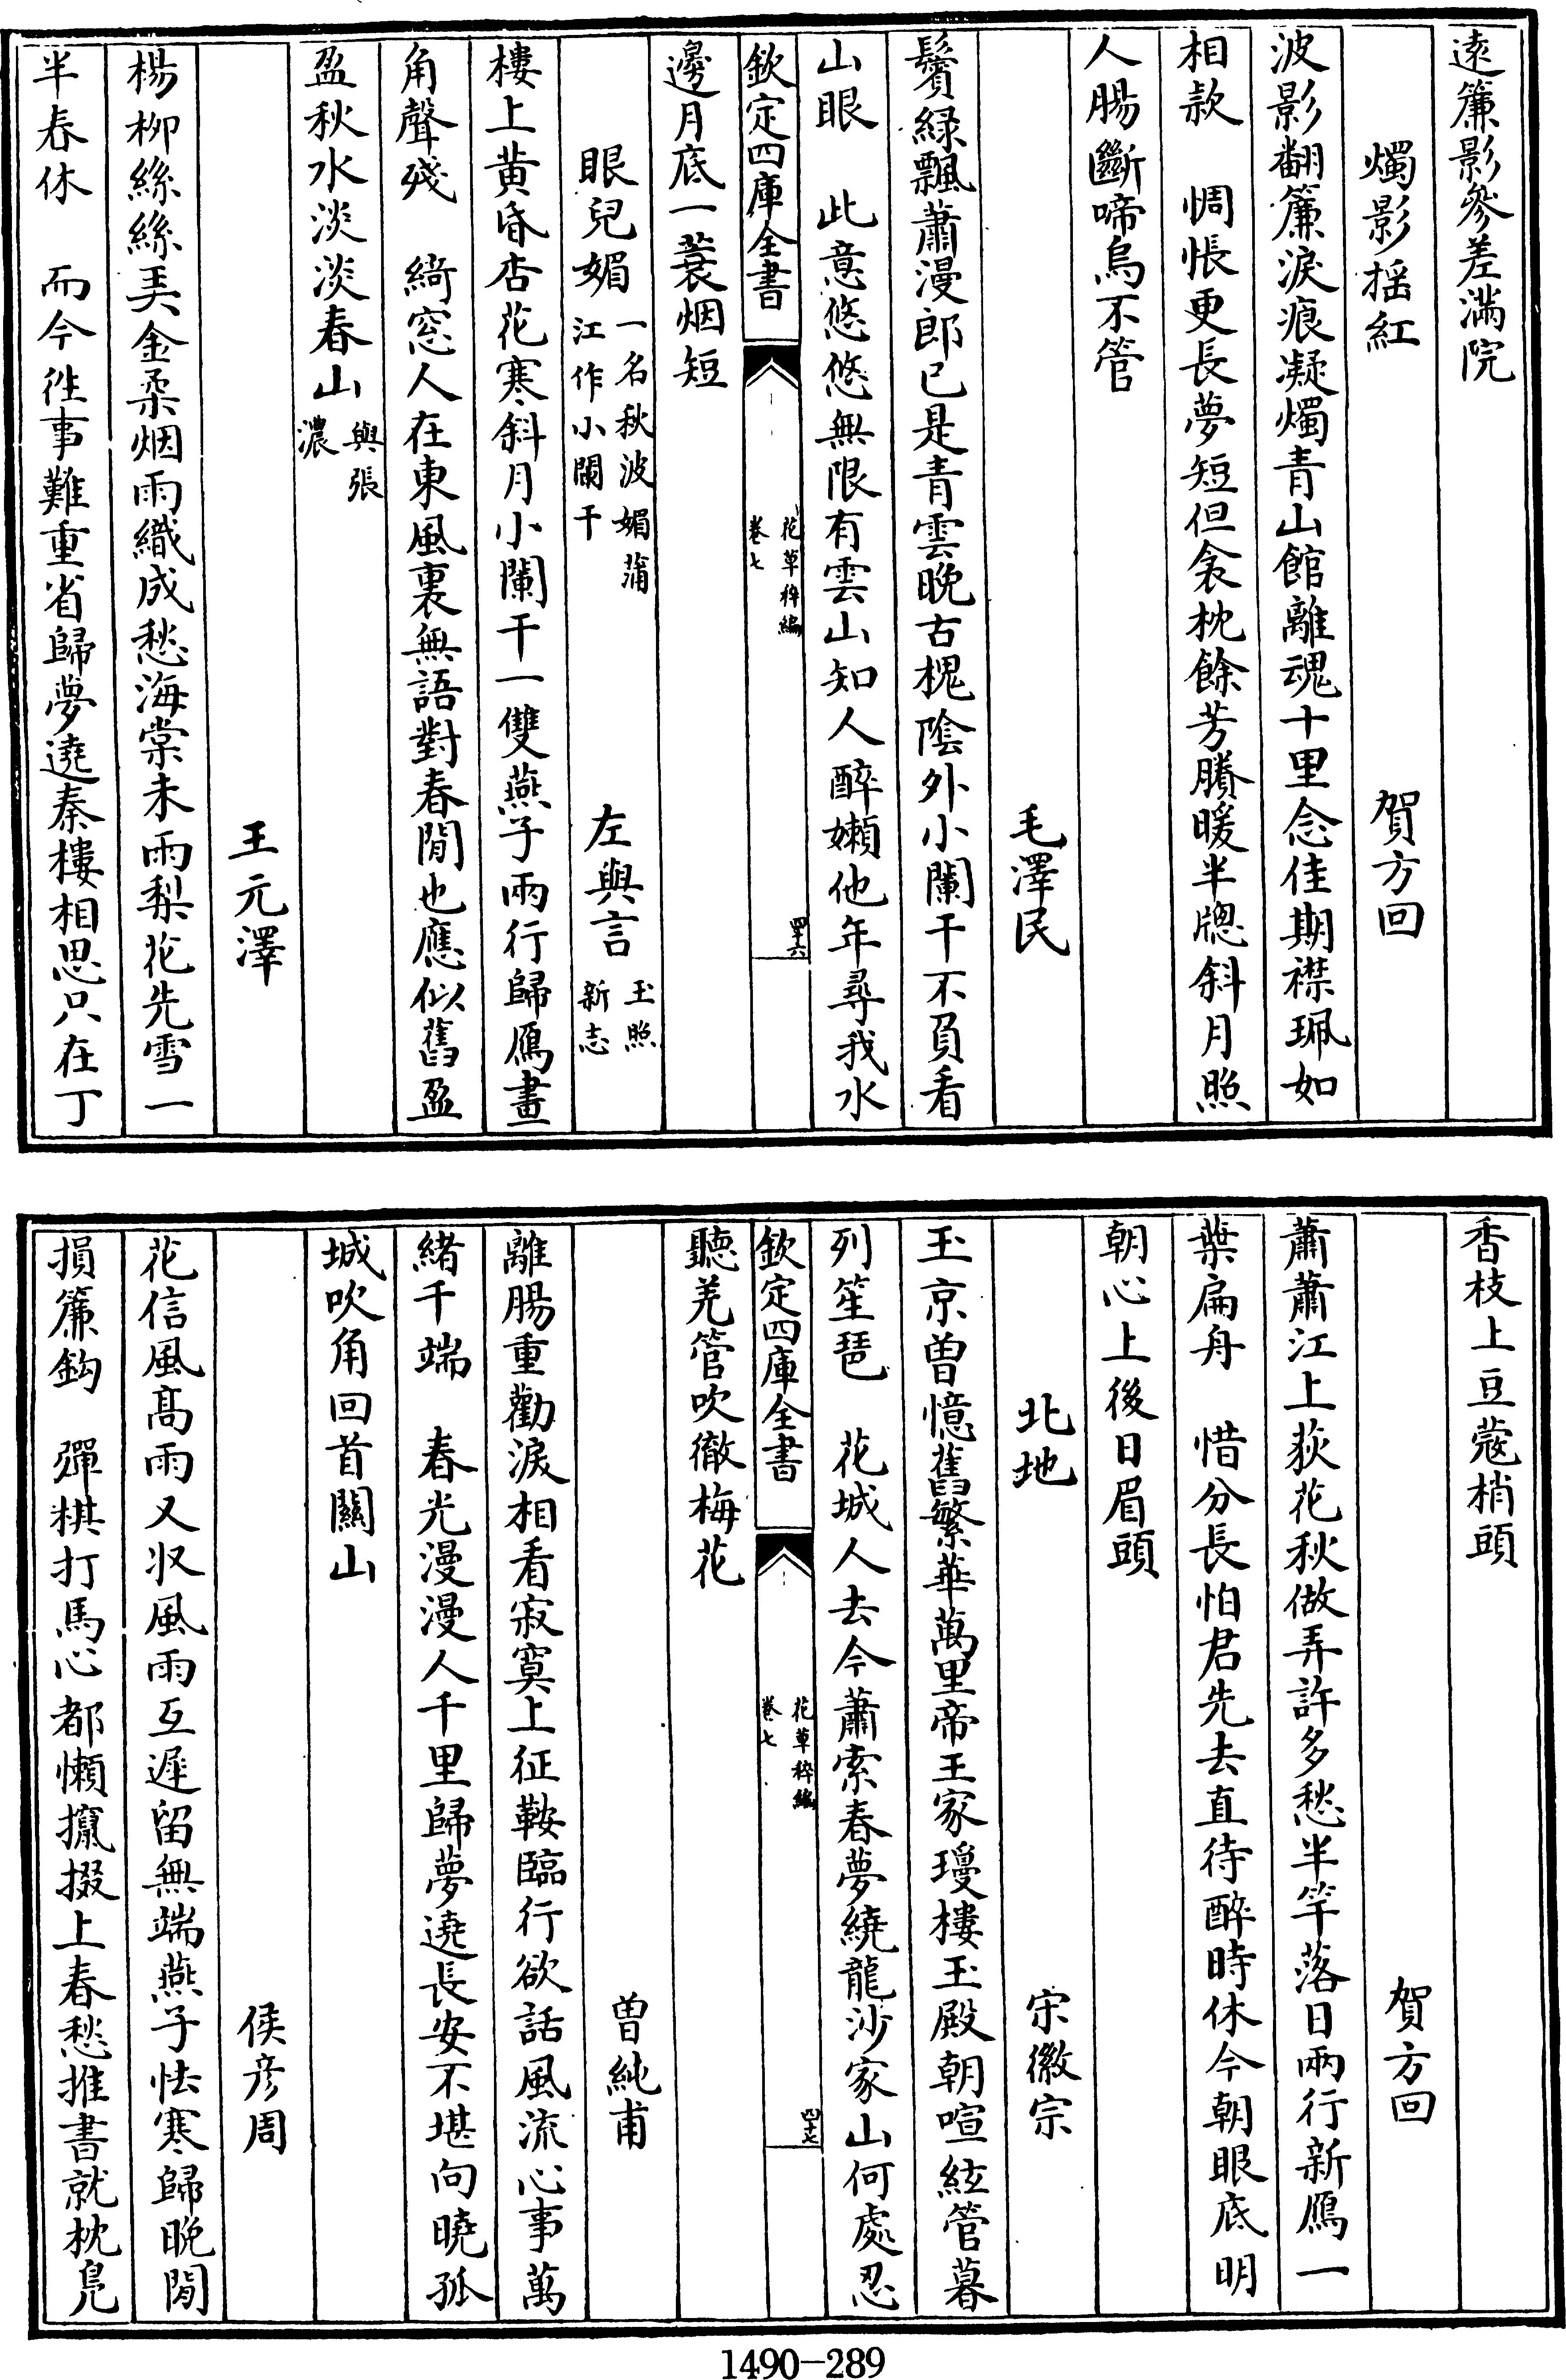 遠簾影參差滿院
燭影摇紅　賀方回
波影翻簾淚痕凝燭青山館離魂十里念佳期襟珮如
相款　惆悵更長夢短但衾枕餘芳賸暖半牕斜月照
人腸斷啼烏不管
毛澤民
鬢緑飄蕭漫郎已是青雲晚古槐隂外小闌干不負看
山眼　此意悠悠無限有雲山知人醉嬾他年尋我水
欽定四庫全書
花草稡編
卷七
四十六
邊月底一蓑烟短
眼兒媚
一名秋波媚蒲
江作小闌干
左與言
玉照
新志
樓上黄昏杏花寒斜月小闌干一雙燕子兩行歸鴈畫
角聲殘　綺窓人在東風裏無語對春閒也應似舊盈
盈秋水淡淡春山
與張
濃
王元澤
楊柳絲絲弄金柔烟雨織成愁海棠未雨梨花先雪一
半春休　而今徃事難重省歸夢遶秦樓相思只在丁
香枝上豆蔻梢頭
賀方回
蕭蕭江上荻花秋做弄許多愁半竿落日兩行新鴈一
葉扁舟　惜分長怕君先去直待醉時休今朝眼底明
朝心上後日眉頭
北地　宋徽宗
玉京曽憶舊繁華萬里帝王家瓊樓玉殿朝喧絃管暮
列笙琶　花城人去今蕭索春夢繞龍沙家山何處忍
欽定四庫全書
花草稡編
卷七
四十七
聽羌管吹徹梅花
曽純甫
離腸重勸淚相看寂寞上征鞍臨行欲話風流心事萬
緒千端　春光漫漫人千里歸夢遶長安不堪向曉孤
城吹角回首關山
侯彦周
花信風髙雨又收風雨互遲留無端燕子怯寒歸晚閒
損簾鈎　彈棋打馬心都懶攛掇上春愁推書就枕鳬
1490-289